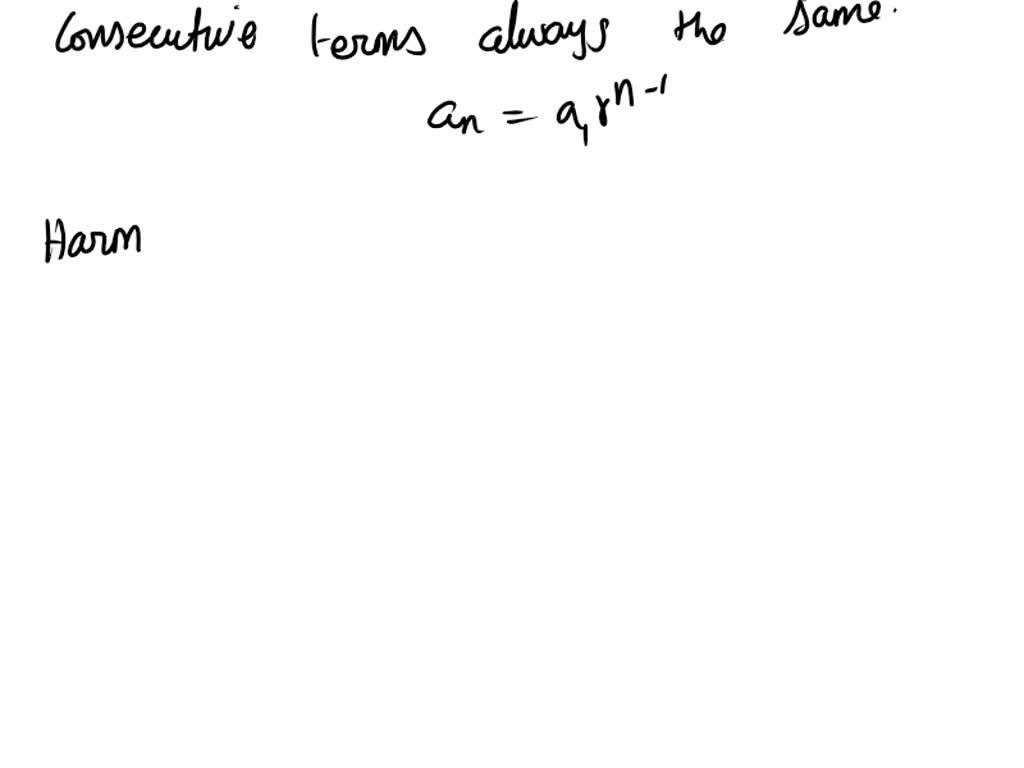 Consecutive terms always the same.
an = a₁rⁿ⁻¹
Harm